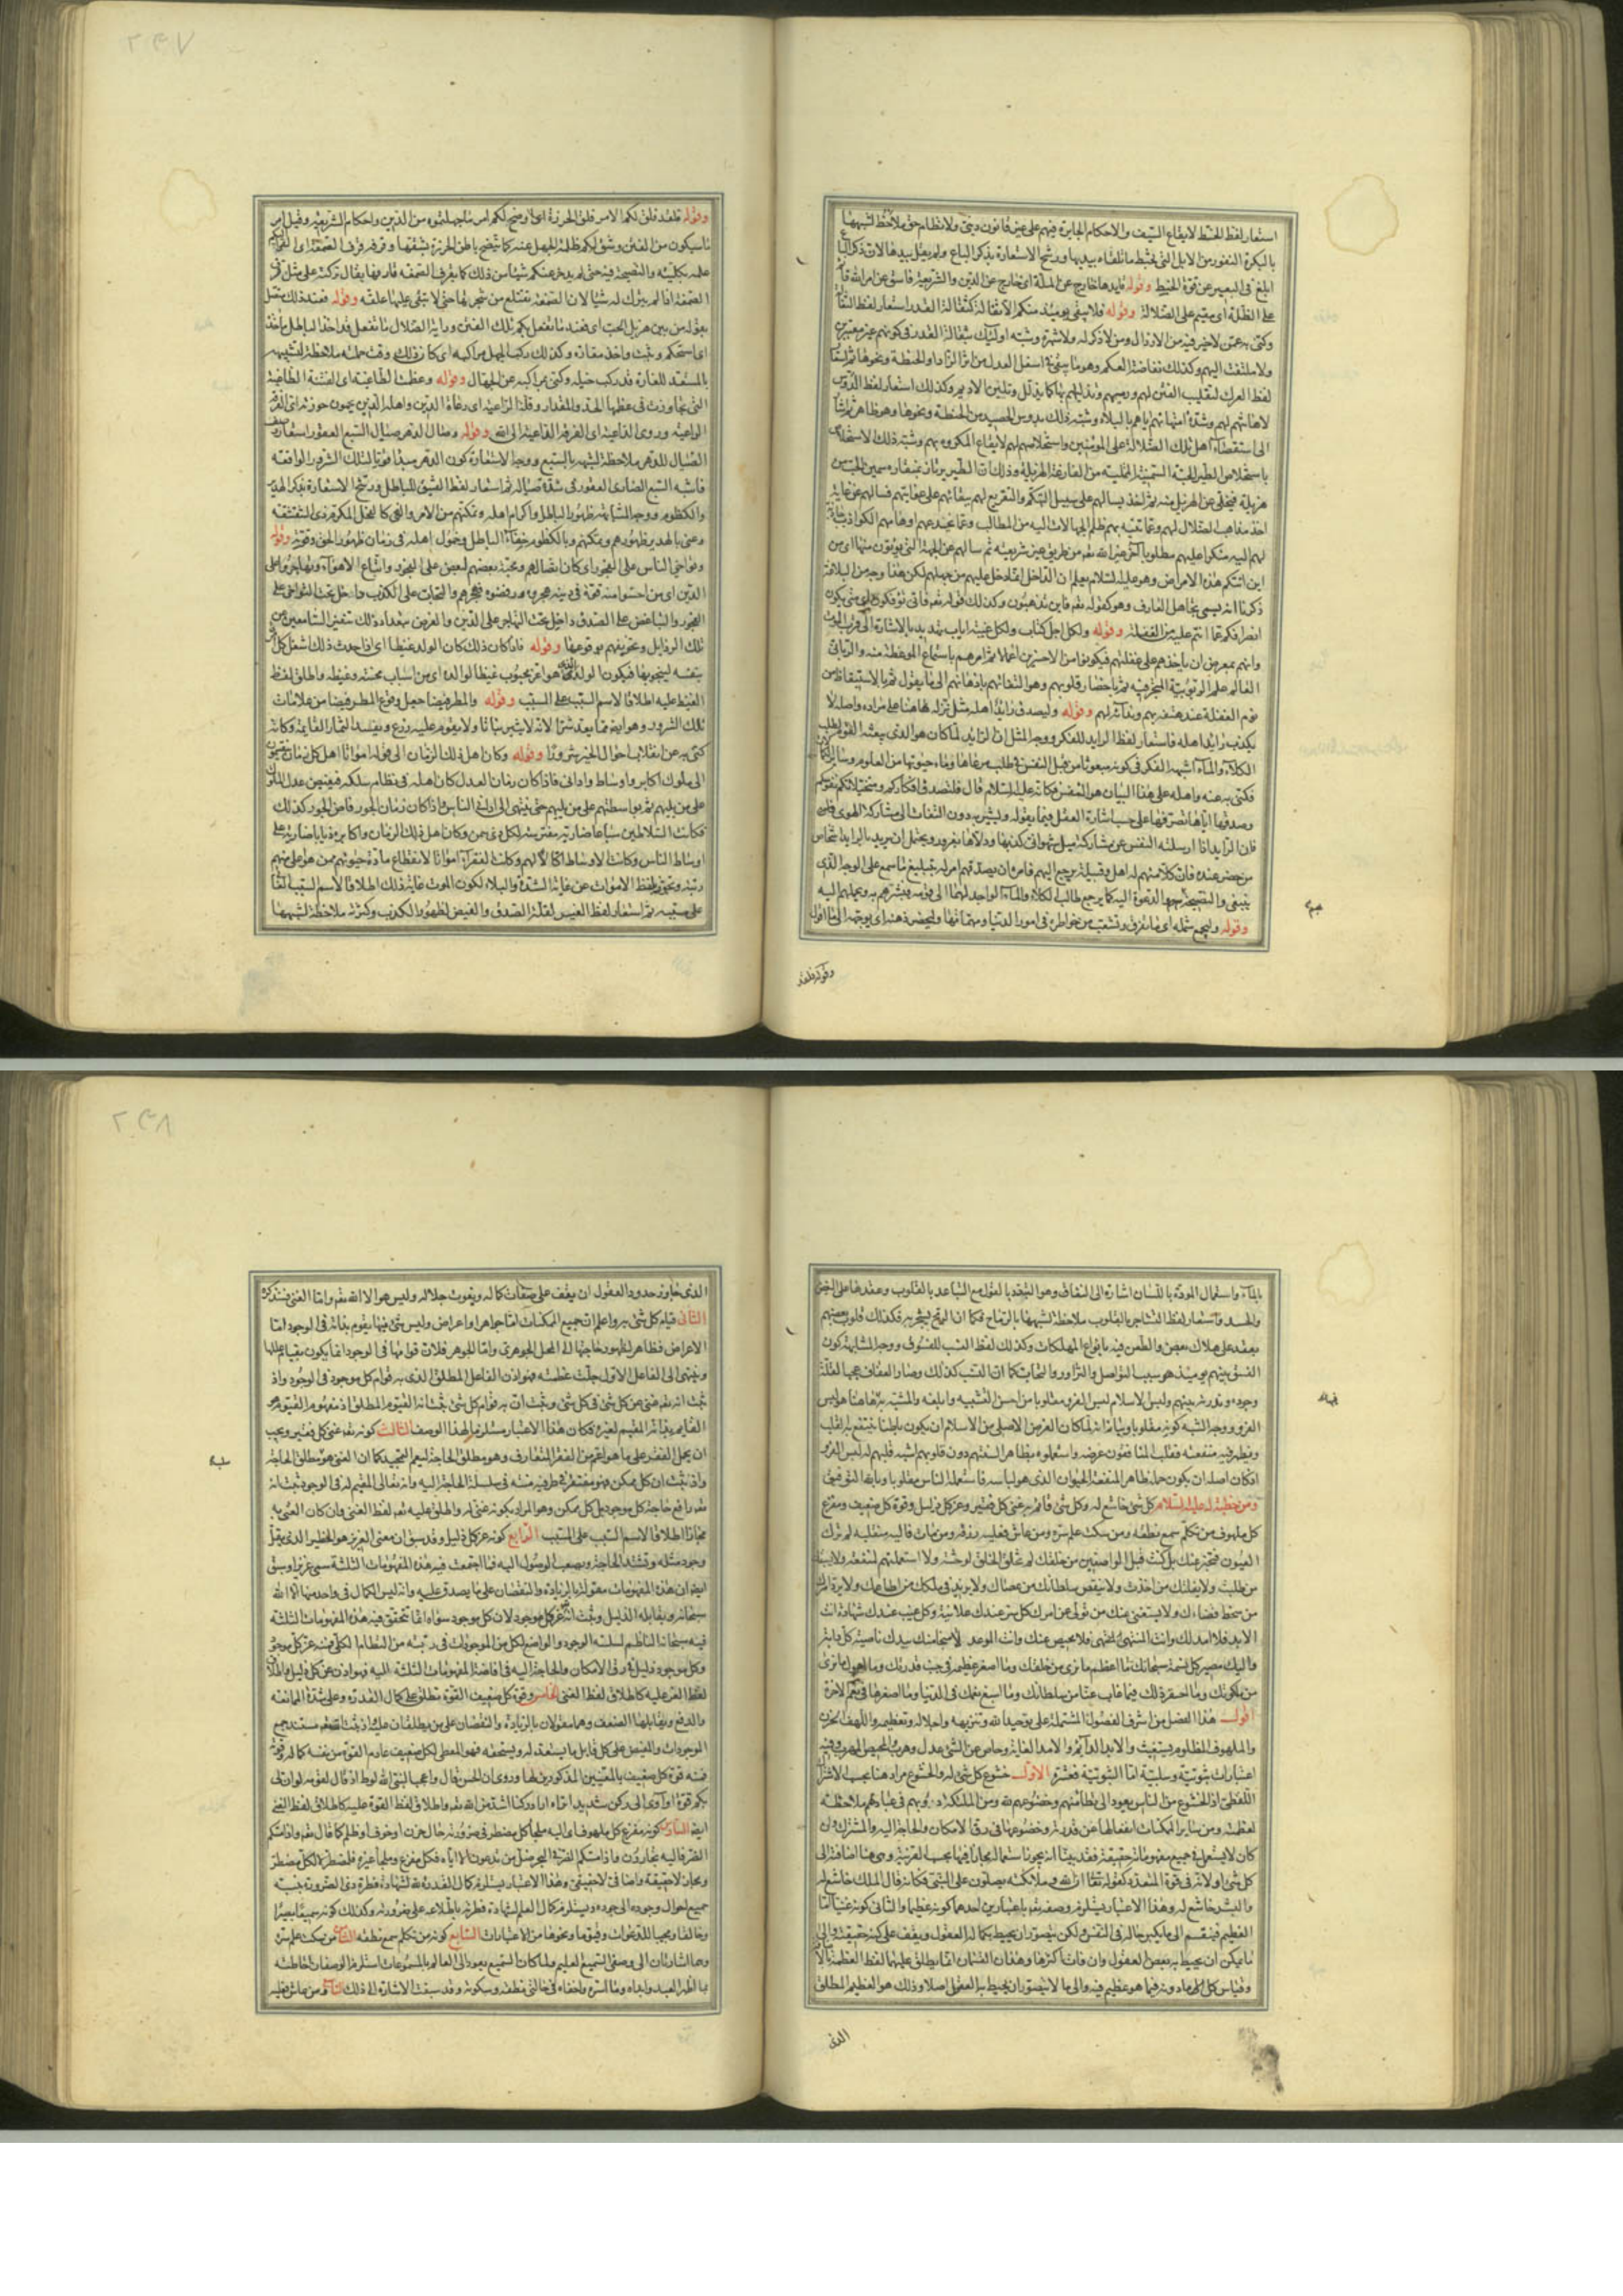 استعار لفظ الخبط لايقاع السيف والاحكام الجايرة فيهم على غير قانون دينى ولا نظام حق ملاحظة لشبهها
بالبكرة النفور من الابل التى تخبط ما تلقاه بيديها ورشح الاستعارة بذكر الباع ولم يقل بيدها لان ذكر الباع
ابلغ فى البعير عن قوة الخبط وقوله قايدها خارج عن الملة اى خارج عن الدين والشريعة فاسق عن امر الله قائم
على الظلة اى مقيم على الضلالة وقوله فلا يبقى يومئذ منكم الا ثفالة كثفالة القدر استعار لفظ الثفالة
وكنى به عمن لا خير فيه من الارذال ومن لا ذكر له ولا شهرة وشبه اولئك بثفالة القدر فى كونهم غير معتبرين
ولا ملتفت اليهم وكذلك نفاضة العكم وهو ما يبقى فى اسفل العدل من اثر الزاد او الحنطة ونحوها ثم استعار
لفظ العرك لتقليب الفتن لهم ورميهم وتذليلهم بها كما يدلل وتليين الاديم وكذلك استعار لفظ الدوس
لاهانتهم لهم وشدة امتهانهم اياهم بالبلاء وشبه ذلك بدوس الحصيد من الحنطة ونحوها وهو ظاهر ثم اشار
الى استقصاء اهل تلك الضلالة على المومنين واستخلاصهم لهم لايقاع المكروه بهم وشبه ذلك الاستخلاص
باستخلاص الطير للحبة السمينة الممتلية من الفارغة الهزيلة وذلك ان الطير يرتاز بمنقاره سمين الحب من
هزيله فيخلى عن الهزيل منه ثم اخذ يسالهم على سبيل التهكم والتقريع لهم ببقائهم على غوايتهم فسالهم عن غاية
اخذ مذاهب الضلال لهم وعما تتيه بهم ظلم الجهالات اليه من المطالب وعما تخدعهم اوهامهم الكواذب
اين اتتكم هذه الامراض وهو عليه السلام يعلم ان الداخل انما دخل عليهم من جهلهم لكن هذا وجه من البلاغة
ذكرنا انه يسمى تجاهل العارف وهو كقوله تعالى فاين تذهبون وكذلك قوله تعالى فانى توفكون اى متى يكون
انصرافكم عما انتم عليه من الغفلة وقوله ولكل اجل كتاب ولكل غيبة اياب تهديد بالاشارة الى قرب الموت
وانهم بمعرض ان ياخذهم على غفلتهم فيكونوا من الاخسرين اعمالا ثم امرهم باستماع الموعظة منه والربانى
العالم علم الربوبية المتبحر فيه ثم باحضار قلوبهم وهو التفاتهم باذهانهم الى ما يقول ثم بالاستيقاظ من
نوم الغفلة عند هتفه بهم وندائه لهم وقوله وليصدق رايد اهله مثل نزله هاهنا على مراده واصله لا
يكذب رايد اهله فاستعار لفظ الرايد للفكر ووجه المثل ان الرايد لما كان هو الذى يبعثه القوم لطلب
الكلاء والماء اشبهه الفكر فى كونه مبعوثا من قبل النفس فى طلب مرعاها وماء حيوتها من العلوم وساير الكمالات
فكنى به عنه واهله على هذا البيان هو النفس فكانه عليه السلام قال فلتصدق افكاركم ومتخيلاتكم نفوسكم
وصدقها اياها تصرفها على حسب اشارة العقل فيما يقوله ويشير به دون التفات الى مشاركة الهوى
فان الرايد اذا ارسلته النفس عن مشاركة ميل شهوانى كذبها ودلاها بغرور ويحتمل ان يريد بالرايد اشخاص
من حضر عنده فان كلا منهم له اهل وقبيلة يرجع اليهم فامر ان يصدقهم امر له بتبليغ ما سمع على الوجه الذى
ينبغى والنصيحة به والدعوة اليه كما يرجع طالب الكلاء والماء الواجد لهما الى قومه فيبشرهم به ويحملهم اليه
وقوله وليجمع شمله اى ما تفرق وتشعب من خواطره فى امور الدنيا ومهماتها وليحضر ذهنه اى يوجهه الى ما اقول
وقوله فلقد
وقوله فلقد فلق لكم الامر فلق الخرزة اى اوضح لكم امر ما جهلتموه من الدين واحكام الشريعة وقيل امر
ما سيكون من الفتن وشق لكم ظلمة الجهل عنه كما يتضح باطن الخرزة بشقها وقرفه قرف الصمغة اى القى اليكم
علمه بكليته والنصيحة فيه حتى لم يدخر عنكم شيئا من ذلك كما يقرف الصمغة قارفها يقال تركته على مثل مقرف
الصمغة اذا لم يترك له شيئا لان الصمغة تقتلع من شجرتها حتى لا تبقى عليها علقة وقوله فعند ذلك متصل
بقوله من بين هزيل الحب اى فعند ما تفعل بكم تلك الفتن وراية الضلال ما تفعل قد اخذ الباطل مأخذه
اى استحكم وثبت واخذ مقاره وكذلك ركب الجهل مراكبه اى كان ذلك وقت حملته ملاحظة لشبهه
بالمستعد للغارة قد ركب خيله وكنى بمراكبه عن الجهال وقوله وعظمت الطاغية اى الفتنة الطاغية
التى تجاوزت فى عظمها الحد والمقدار وقلت الراعية اى رعاة الدين واهله الذين يحمون حوزته اى الفرقة
الراعية وروى الداعية اى الفرقة الداعية الى الله وقوله وصال الدهر صيال السبع العقور استعار وصف
الصيال للدهر ملاحظة لشبهه بالسبع ووجه الاستعارة كون الدهر مبدأ قويا لتلك الشرور الواقعة
فاشبه السبع الضارى العقور فى شدة صياله ثم استعار لفظ الفنيق للباطل ورشح الاستعارة بذكر الهدير
والكظوم ووجه المشابهة ظهور الباطل واكرام اهله وتمكنهم من الامر والنهى كالفحل المكرم ذى الشقشقة
وعنى بالهدير ظهورهم وتمكنهم وبالكظوم خفاء الباطل وخمول اهله فى زمان ظهور الحق وقوته وقوله
وتواخى الناس على الفجور اى كان اتصالهم ومحبة بعضهم لبعض على الفجور واتباع الاهواء وتهاجروا على
الدين اى من احسوا منه قوة فى دينه هجروه ورفضوه فهجرهم والتحاب على الكذب داخل تحت التواخى على
الفجور والتباغض على الصدق داخل تحت التهاجر على الدين والغرض بتعداد ذلك تنفير السامعين عن
تلك الرذايل وتخويفهم بوقوعها وقوله فاذا كان ذلك كان الولد غيظا اى اذا حدث ذلك اشتغل كل امرء
بنفسه لينجو بها فيكون الولد الذى هو اعز محبوب غيظا لوالده اى من اسباب محنته وغيظه واطلق لفظ
الغيظ عليه اطلاقا لاسم السبب على المسبب وقوله والمطر قيظا جعل وقوع المطر قيظا من علامات
تلك الشرور وهو ايضا مما يعد شرا لانه لا يثير نباتا ولا يقوم عليه زرع ويفسد الثمار القايمة وكانه
كنى به عن انقلاب احوال الخير شرورا وقوله وكان اهل ذلك الزمان الى قوله امواتا اهل كل زمان ينقسمون
الى ملوك اكابر واوساط وادانى فاذا كان زمان العدل كان اهله فى نظام سلكه فيفيض عدل الملوك
على من يليهم ثم بواسطتهم على من يليهم حتى ينتهى الى ادانى الناس واذا كان زمان الجور فاض الجور كذلك
فكانت السلاطين سباعا ضارية مفترسة لكل ذى سمن وكان اهل ذلك الزمان واكابره ذيابا ضارية على
اوساط الناس وكانت الاوساط اكالا لهم وكانت الفقراء امواتا لانقطاع مادة حيوتهم ممن هو اعلى منهم
رتبة وتجوز بلفظ الاموات عن غاية الشدة والبلاء لكون الموت غاية ذلك اطلاقا لاسم السبب الغائى
على مسببه ثم استعار لفظ الغيض لقلة الصدق والفيض لظهور الكذب وكثرته ملاحظة لشبههما
بالماء واستعمال المودة باللسان اشارة الى النفاق وهو التودد بالقول مع التباعد بالقلوب وعقدها على البغض
والحسد واستعار لفظ التشاجر بالقلوب ملاحظة لشبهها بالرماح فكما ان الرمح يشجر به فكذلك قلوب بعضهم
يعقد على هلاك بعض والطعن فيه بانواع المهلكات وكذلك لفظ النسب للفسوق ووجه المشابهة كون
الفسق بينهم يومئذ هو سببا للتواصل والتزاور والتحاب كما ان النسب كذلك وصار العفاف عجبا لقلة
وجوده وندرته بينهم ولبس الاسلام لبس الفرو مقلوبا من احسن التشبيه وابلغه والمشبه به هاهنا هو لبس
الفرو ووجه الشبه كونه مقلوبا وبيانه انه لما كان الغرض الاصلى من الاسلام ان يكون باطنا ينتفع به القلب
ويظهر فيه منفعته فقلب المنافقون غرضه واستعملوه بظاهر السنتهم دون قلوبهم اشبه قلبهم له لبس الفرو
اذ كان اصله ان يكون حمله ظاهرا لمنفعة الحيوان الذى هو لباسه فاستعمله الناس مقلوبا وبالله التوفيق
ومن خطبة له عليه السلام كل شئ خاشع له وكل شئ قائم به غنى كل فقير وعز كل ذليل وقوة كل ضعيف ومفزع
كل ملهوف من تكلم سمع نطقه ومن سكت علم سره ومن عاش فعليه رزقه ومن مات فاليه منقلبه لم ترك
العيون فتخبر عنك بل كنت قبل الواصفين من خلقك لم تخلق الخلق لوحشة ولا استعملتهم لمنفعة ولا يسبقك
من طلبت ولا يفلتك من اخذت ولا ينقص سلطانك من عصاك ولا يزيد فى ملكك من اطاعك ولا يرد امرك
من سخط قضاءك ولا يستغنى عنك من تولى عن امرك كل سر عندك علانية وكل غيب عندك شهادة انت
الابد فلا امد لك وانت المنتهى فلا محيص عنك وانت الموعد لا منجا منك بيدك ناصية كل دابة
واليك مصير كل نسمة سبحانك ما اعظم ما نرى من خلقك وما اصغر عظيمه فى جنب قدرتك وما اهول ما نرى
من ملكوتك وما احقر ذلك فيما غاب عنا من سلطانك وما اسبغ نعمك فى الدنيا وما اصغرها فى نعم الاخرة
اقول هذا الفصل من اشرف الفصول المشتملة على توحيد الله وتنزيهه واجلاله وتعظيمه واللهف الحزن
والملهوف المظلوم يستغيث والابد الدائم والامد الغاية وحاص عن الشئ عدل وهرب والمحيص المهرب وفيه
اعتبارات ثبوتية وسلبية اما الثبوتية فعشرة الاول خشوع كل شئ له والخشوع مراد هنا بحسب الاشتراك
اللفظى اذ الخشوع من الناس يعود الى تطامنهم وخضوعهم لله ومن الملئكة دؤوبهم فى عبادتهم ملاحظة
لعظمته ومن ساير الممكنات انفعالها عن قدرته وخضوعها فى رق الامكان والحاجة اليه والمشترك وان
كان لا يستعمل فى جميع مفهوماته حقيقة فقد بينا انه يجوز استعماله مجازا فيها بحسب القرينة وهى هنا اضافته الى
كل شئ او لانه فى قوة المتعدد كقوله تعالى ان الله وملائكته يصلون على النبى فكانه قال الملك خاشع له
والبشر خاشع له وهذا الاعتبار يستلزم وصفه تعالى باعتبارين احدهما كونه عظيما والثانى كونه غنيا اما
العظيم فينقسم الى ما يكبر حاله فى النفس ولكن يتصور ان يحيط بكماله العقول ويقف على كنه حقيقته والى
ما يمكن ان يحيط به بعض العقول وان فات اكثرها وهذان القسمان انما يطلق عليهما لفظ العظمة بالاضافة
وقياس كل الى ما دونه فيما هو عظيم فيه والى ما لا يتصور ان يحيط به العقول اصلا وذلك هو العظيم المطلق
الذى
الذى تجاوز حدود العقول ان يقف على صفات كماله ونعوت جلاله وليس هو الا الله تعالى واما الغنى فسنذكره
الثانى قيام كل شئ به واعلم ان جميع الممكنات اما جواهر او اعراض وليس شئ منها يقوم بذاته فى الوجود اما
الاعراض فظاهر لظهور حاجتها الى المحل الجوهرى واما الجوهر فلان قوامها فى الوجود انما يكون بقيام عللها
وينتهى الى الفاعل الاول جلت عظمته فهو اذن الفاعل المطلق الذى به قوام كل موجود فى الوجود واذ
ثبت انه تعالى غنى عن كل شئ فى كل شئ وثبت ان به قوام كل شئ ثبت انه القيوم المطلق اذ مفهوم القيوم هو
القايم بذاته المقيم لغيره فكان هذا الاعتبار مستلزما لهذا الوصف الثالث كونه تعالى غنى كل فقير ويجب
ان يحمل الفقر على ما هو اعم من الفقر المتعارف وهو مطلق الحاجة ليعم التمجيد كما ان الغنى هو سلب مطلق الحاجة
واذ ثبت ان كل ممكن فهو مفتقر فى طرفيه منته فى سلسلة الحاجة اليه وانه تعالى المقيم له فى الوجود ثبت انه
تعالى رافع حاجة كل موجود بل كل ممكن وهو المراد بكونه غنى له واطلق عليه تعالى لفظ الغنى وان كان الغنى به
مجازا اطلاقا لاسم السبب على المسبب الرابع كونه عز كل ذليل وقد سبق ان معنى العزيز هو الخطير الذى يقل
وجود مثله وتشتد الحاجة ويصعب الوصول اليه فما اجتمعت فيه هذه المفهومات الثلثة سمى عزيزا وسبق
ايضا ان هذه المفهومات مقولة بالزيادة والنقصان على ما يصدق عليه وانه ليس الكمال فى واحد منها الا لله
سبحانه ويقابله الذليل وثبت انه عز كل موجود لان كل موجود سواه انما تتحقق فيه هذه المفهومات الثلثة
فيه سبحانه الناظم لسلسلة الوجود والواضع لكل من الموجودات فى رتبته من النظام الكلى فمنه عز كل موجود
وكل موجود ذليل فى رق الامكان والحاجة اليه فى افاضة المفهومات الثلثة اليه فهو اذن عز كل ذليل واطلاق
لفظ العز عليه كاطلاق لفظ الغنى الخامس وقوة كل ضعيف القوة تطلق على كمال القدرة وعلى شدة الممانعة
والدفع ويقابلها الضعف وهما مقولان بالزيادة والنقصان على من يطلقان عليه واذ ثبت انه تعالى مستند جميع
الموجودات والمفيض على كل قابل ما يستعد له ويستحقه فهو المعطى لكل ضعيف عادم القوة من نفسه كماله وقوته
فمنه قوة كل ضعيف بالمعنيين المذكورين لها وروى ان الحسن قال واعجبا لنبى الله لوط اذ قال لقومه لو ان لى
بكم قوة او آوى الى ركن شديد اتراه اراد ركنا اشد من الله تعالى واطلاق لفظ القوة عليه كاطلاق لفظ الغنى
ايضا السادس كونه مفزع كل ملهوف اى اليه ملجأ كل مضطر فى ضرورته حال حزن او خوف او ظلم كما قال تعالى واذا مسكم
الضر فاليه تجأرون واذا مسكم الضر فى البحر ضل من تدعون الا اياه فكل مفزع وملجأ غيره فلمضطر لا لكل مضطر
ومجاز لا حقيقة واضافى لا حقيقى وهذا الاعتبار يستلزم كمال القدرة لله لشهادة فطرة ذى الضرورة بنسبة
جميع احوال وجوده الى جوده ويستلزم كمال العلم لشهادة فطرته باطلاعه على ضرورته وكذلك كونه سميعا بصيرا
وخالقا ومجيبا للدعوات وقيوما ونحوها من الاعتبارات السابع كونه من تكلم سمع نطقه الثامن من سكت علم سره
وهما اشارتان الى وصفى السميع العليم ولما كان السميع يعود الى العالم بالمسموعات استلزم الوصفان احاطته
بما اظهر العبد وابداه وما اسره واخفاه فى حالتى نطقه وسكوته وقد سبقت الاشارة الى ذلك التاسع ومن عاش فعليه